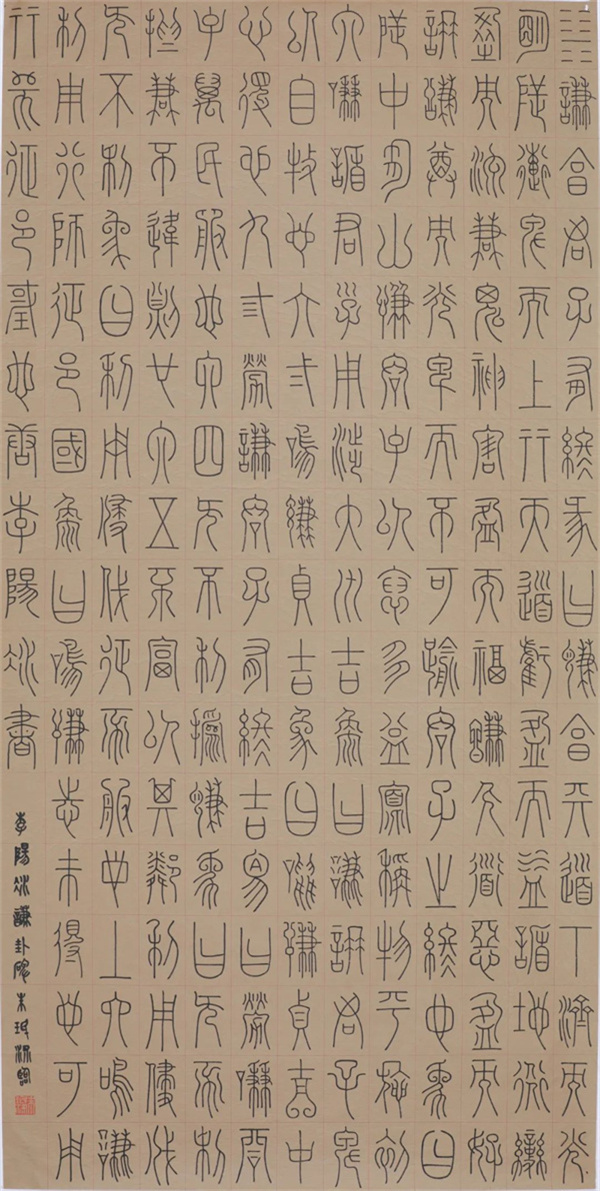 ䷎謙亨君子有終彖曰謙亨天道下濟而光
明地道卑而上行天道虧盈而益謙地道變
盈而流謙鬼神害盈而福謙人道惡盈而好
謙謙尊而光卑而不可踰君子之終也象曰
地中有山謙君子以裒多益寡稱物平施初
六謙謙君子用涉大川吉象曰謙謙君子卑
以自牧也六二鳴謙貞吉象曰鳴謙貞吉中
心得也九三勞謙君子有終吉象曰勞謙君
子萬民服也六四无不利撝謙象曰无不利
撝謙不違則也六五不富以其鄰利用侵伐
无不利象曰利用侵伐征不服也上六鳴謙
利用行師征邑國象曰鳴謙志未得也可用
行師征邑國也唐李陽冰書
李陽冰謙卦碑